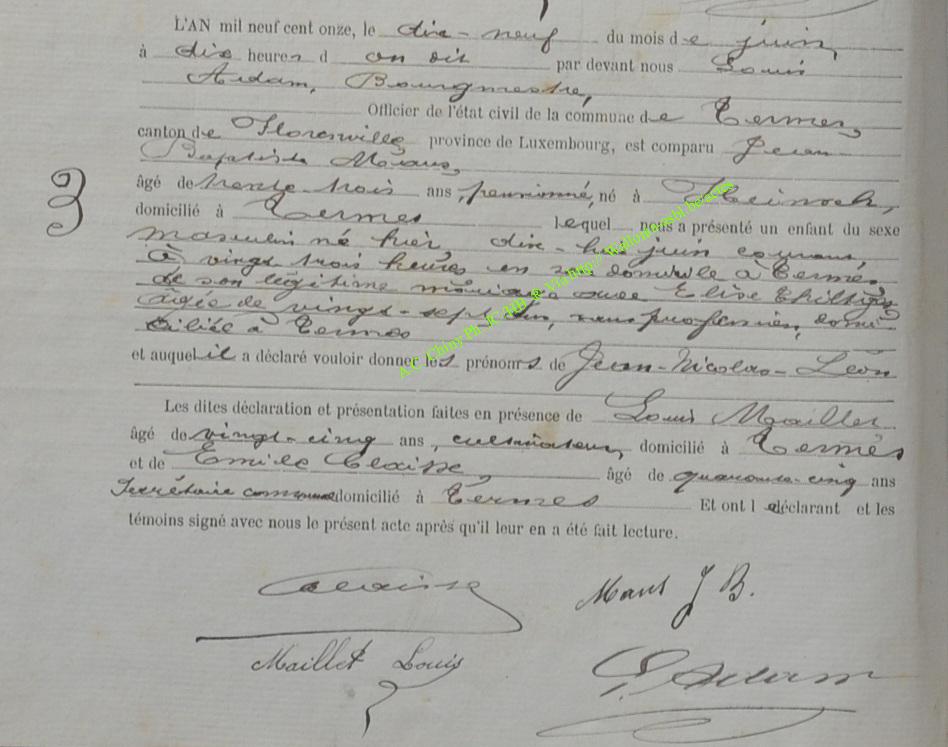 L'AN mil neuf cent onze, le dix-neuf du mois de juin,
à dix heures d du soir par devant nous Louis
Adam, Bourgmestre,
Officier de l'état civil de la commune de Termes,
canton de Florenville, province de Luxembourg, est comparu Jean
Baptiste
âgé de trente-trois ans, pensionné, né à
domicilié à Termes lequel nous a présenté un enfant du sexe
3
masculin né hier, dix-huit juin courant,
à vingt trois heures en son domicile à Termes,
de son légitime mariage avec Elise
âgée de vingt-sept ans, sans profession, domi-
ciliée à Termes
et auquel il a déclaré vouloir donner les prénoms de Jean-Nicolas-Léon
Les dites déclaration et présentation faites en présence de Louis Maillet
âgé de vingt-cinq ans, cultivateur, domicilié à Termes
et de Emile Claisse, âgé de quarante-cinq ans
Secrétaire communal domicilié à Termes Et ont l e déclarant et les
témoins signé avec nous le présent acte après qu'il leur en a été fait lecture.
Claisse Maus J B.
Maillet Louis L. Adam